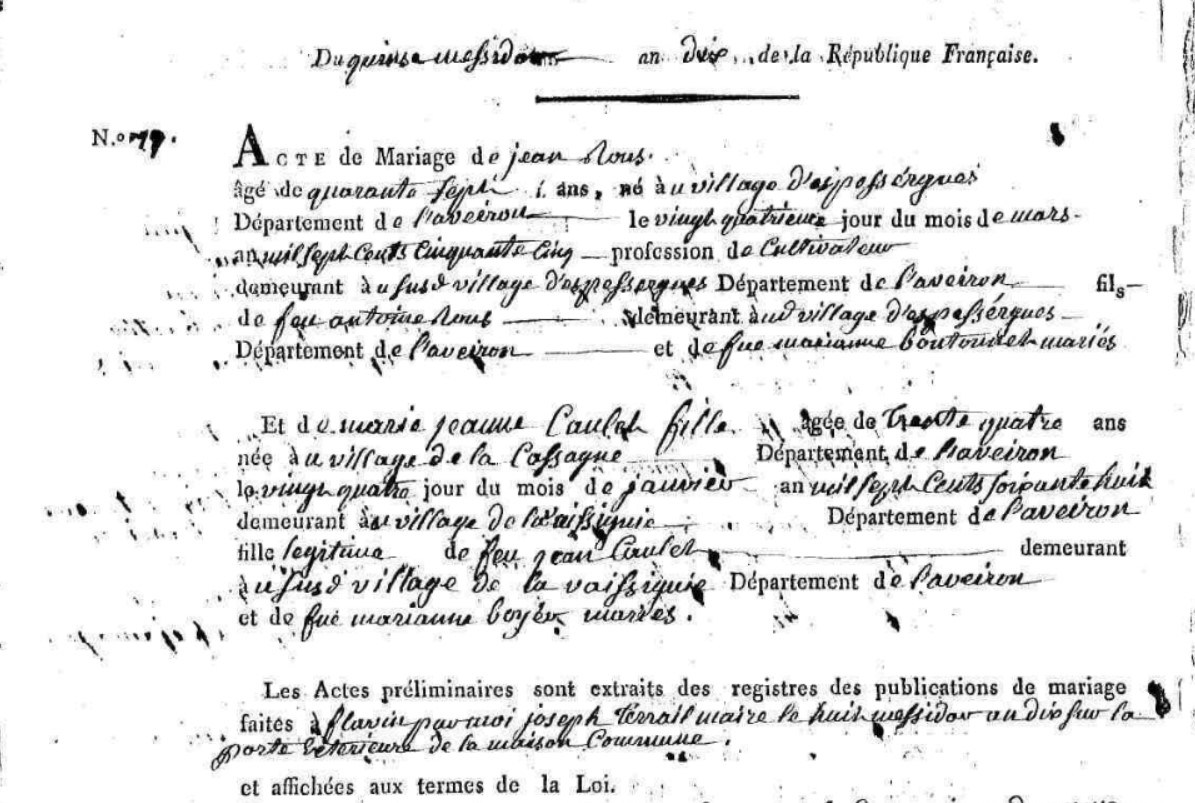 Du quinse messidor an dix de la République Française.
N.o 19.
ACTE de Mariage de jean Rous.
âgé de quarante sept ans, né à u village d'espessergues
Département de l'aveiron le vingt quatrieme jour du mois de mars
an mil sept cents cinquante cinq profession de Cultivateur
demeurant à u susd village d'espessergues Département de l'aveiron fils
de feu antoine Rous demeurant à ud village d'espessérgues
Département de l'aveiron et de fue marianne boutonnet mariés
Et de marie jeanne Caulet fille âgée de Trente quatre ans
née à u village de la Cassagne Département de l'aveiron
le vingt quatre jour du mois de janvier an mil sept Cents soixante huit
demeurant à u village de la vaissiguie Département de l'aveiron
fille legitime de feu jean Caulet demeurant
à u susd village de la vaissiguie Département de l'aveiron
et de fue marianne boyér mariés.
Les Actes préliminaires sont extraits des registres des publications de mariage
faites à flavin par moi joseph Terrail maire le huit messidor an dix sur la
porte exterieure de la maison Commune.
et affichées aux termes de la Loi.